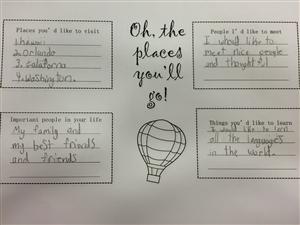 Places you'd like to visit
1. hawaii
2. Orlando
3. Californa
4. Washington.
Oh, the
places
you'll
go!
People I'd like to meet
I would like to
meet nice people
and thoughtful
Important people in your life
My family and
my best friends
and friends
Things you'd like to learn
I would like to lern
all the languages
in the world.